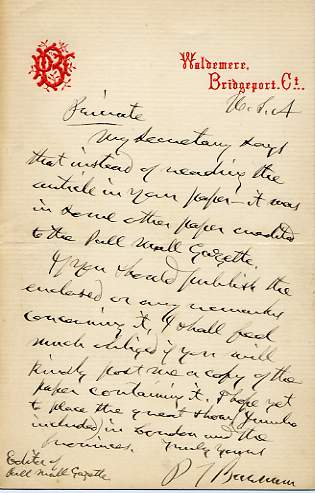 PTB
Waldemere,
Bridgeport, Ct.
U.S.A
Private
My Secretary says
that instead of reading the
article in your paper - it was
in some other paper credited
to the Pall Mall Gazette.
If you should publish the
enclosed or any remarks
concerning it, I shall feel
much obliged if you will
kindly post me a copy of the
paper containing it. I hope yet
to place the great show (Jumbo
included) in London and the
provinces. Truly yours
P T Barnum
Editor of
Pall Mall Gazette